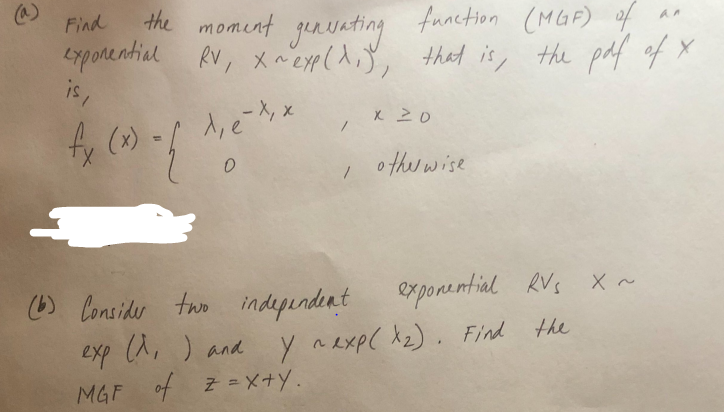 (a) Find the moment generating function (MGF) of an
exponential RV, X ~ exp(λ₁), that is, the pdf of X
is,
fₓ(x) = { λ₁e^{-λ₁x} , x ≥ 0
0 , otherwise
(b) Consider two independent exponential RVs X ~
exp (λ₁ ) and Y ~ exp( λ₂). Find the
MGF of Z = X+Y.